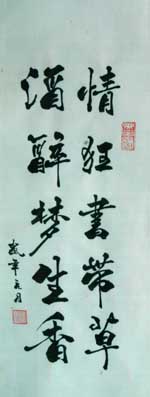 情狂書帶草
酒醉梦生香